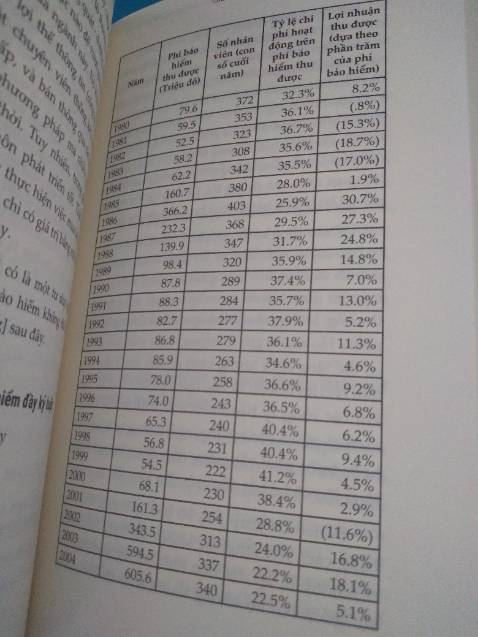 ngành
lợi thế thông
chuyên viên thẩm
và bán thông
phương pháp mà
thời. Tuy nhiên, trong
phát triển tốt
thực hiện việc
chỉ có giá trị bằng
y.
có là một tư duy
bảo hiểm không
sau đây.
hiểm đầy kỷ luật
y
Năm
Phí bảo
hiểm
thu được
(Triệu đô)
Số nhân
viên (con
số cuối
năm)
Tỷ lệ chi
phí hoạt
động trên
phí bảo
hiểm thu
được
Lợi nhuận
thu được
(dựa theo
phần trăm
của phí
bảo hiểm)
1980 79.6 372 32.3% 8.2%
1981 59.5 353 36.1% (.8%)
1982 52.5 323 36.7% (15.3%)
1983 58.2 308 35.6% (18.7%)
1984 62.2 342 35.5% (17.0%)
1985 160.7 380 28.0% 1.9%
1986 366.2 403 25.9% 30.7%
1987 232.3 368 29.5% 27.3%
1988 139.9 347 31.7% 24.8%
1989 98.4 320 35.9% 14.8%
1990 87.8 289 37.4% 7.0%
1991 88.3 284 35.7% 13.0%
1992 82.7 277 37.9% 5.2%
1993 86.8 279 36.1% 11.3%
1994 85.9 263 34.6% 4.6%
1995 78.0 258 36.6% 9.2%
1996 74.0 243 36.5% 6.8%
1997 65.3 240 40.4% 6.2%
1998 56.8 231 40.4% 9.4%
1999 54.5 222 41.2% 4.5%
2000 68.1 230 38.4% 2.9%
2001 161.3 254 28.8% (11.6%)
2002 343.5 313 24.0% 16.8%
2003 594.5 337 22.2% 18.1%
2004 605.6 340 22.5% 5.1%